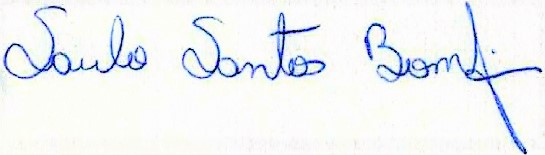 Saulo Santos Bomfim